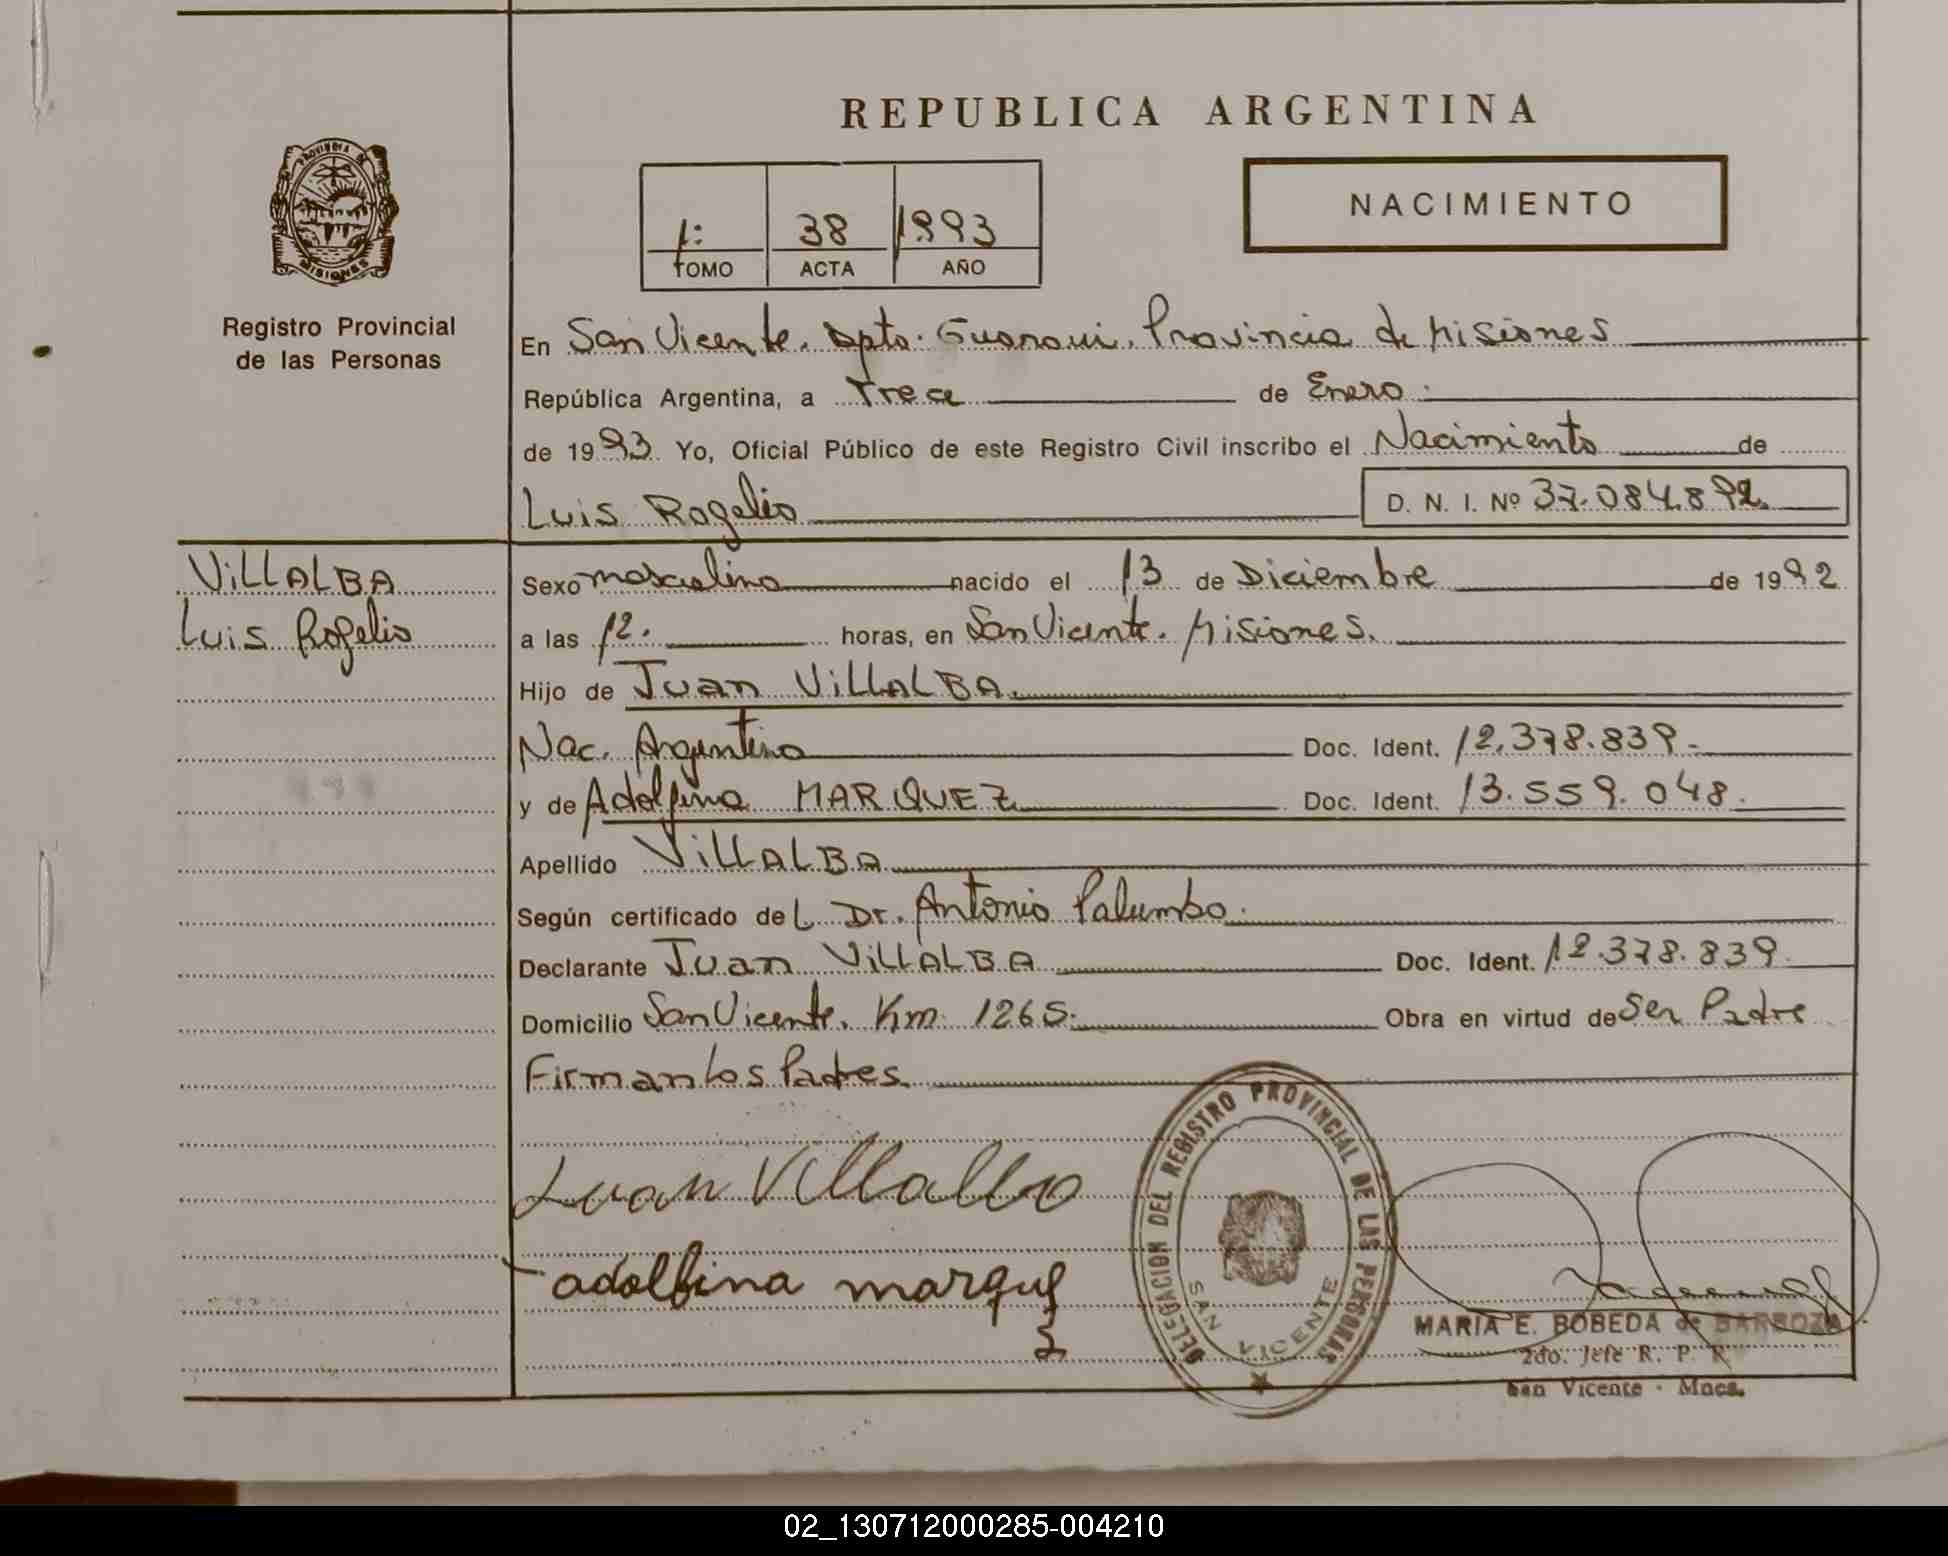 REPUBLICA ARGENTINA
PROVINCIA DE
MISIONES
Registro Provincial
de las Personas
1: 38 1993
TOMO ACTA AÑO
NACIMIENTO
En San Vicente. Dpto. Guarani. Provincia de Misiones
República Argentina, a Trece de Enero.
de 1993 Yo, Oficial Público de este Registro Civil inscribo el Nacimiento de
Luis Rogelio D. N. I. Nº 37.084.892.
VILLALBA
Luis Rogelio
Sexo masculino nacido el 13 de Diciembre de 1992
a las 12. horas, en San Vicente. Misiones.
Hijo de Juan VILLALBA.
Nac. Argentino Doc. Ident. 12.378.839.
y de Adolfina MARQUEZ Doc. Ident. 13.559.048.
Apellido VILLALBA
Según certificado del Dr. Antonio Palumbo.
Declarante Juan VILLALBA Doc. Ident. 12.378.839.
Domicilio San Vicente. Km. 1265. Obra en virtud de Ser Padre
Firman los Padres.
Juan Villalba
adolfina marquez
DELEGACION DEL REGISTRO PROVINCIAL DE LAS PERSONAS
SAN VICENTE
MARIA E. BOBEDA de BARBOZA
2do. Jefe R. P. P.
San Vicente - Mnes.
02_130712000285-004210